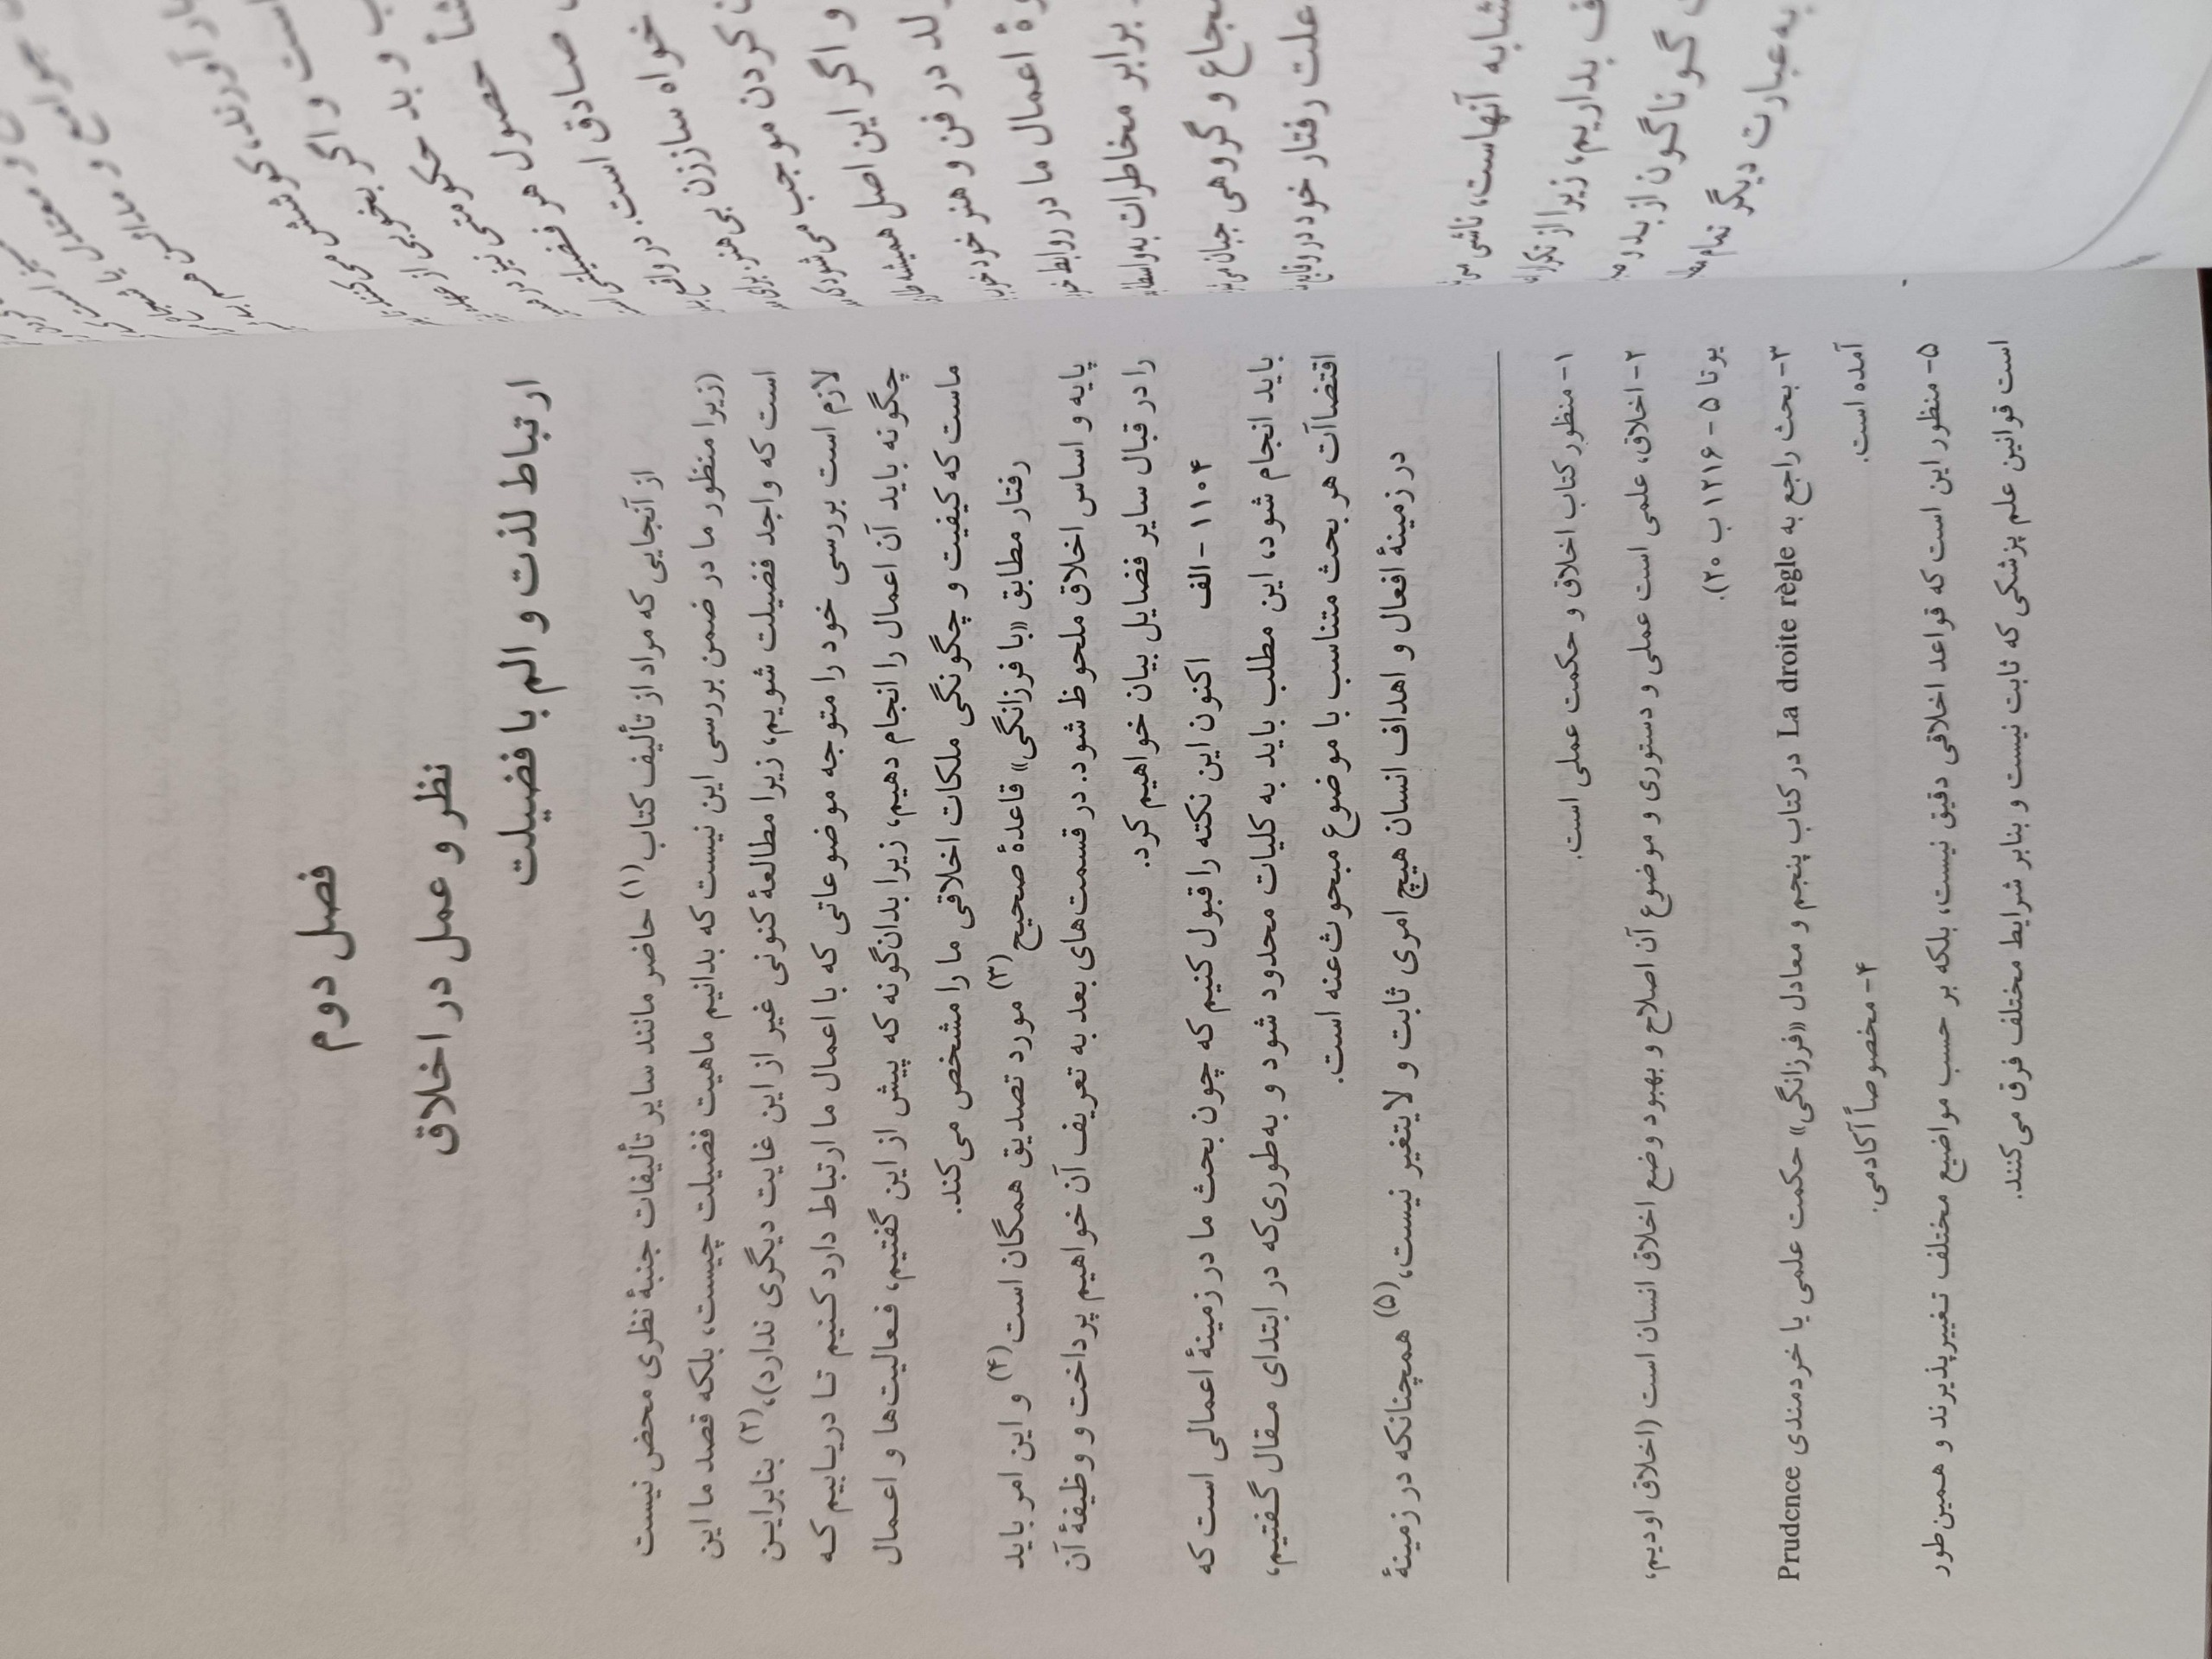 فصل دوم
نظر و عمل در اخلاق
ارتباط لذت و الم با فضیلت
از آنجایی که مراد از تألیف کتاب(۱) حاضر مانند سایر تألیفات جنبهٔ نظری محض نیست
(زیرا منظور ما در ضمن بررسی این نیست که بدانیم ماهیت فضیلت چیست، بلکه قصد ما این
است که واجد فضیلت شویم، زیرا مطالعهٔ کنونی غیر از این غایت دیگری ندارد)،(۲) بنابراین
لازم است بررسی خود را متوجه موضوعاتی که با اعمال ما ارتباط دارد کنیم تا دریابیم که
چگونه باید آن اعمال را انجام دهیم، زیرا بدان‌گونه که پیش از این گفتیم، فعالیت‌ها و اعمال
ماست که کیفیت و چگونگی ملکات اخلاقی ما را مشخص می‌کند.
رفتار مطابق «با فرزانگی» قاعدهٔ صحیح(۳) مورد تصدیق همگان است(۴) و این امر باید
پایه و اساس اخلاق ملحوظ شود. در قسمت‌های بعد به تعریف آن خواهیم پرداخت و وظیفهٔ آن
را در قبال سایر فضایل بیان خواهیم کرد.
۱۱۰۴ - الف اکنون این نکته را قبول کنیم که چون بحث ما در زمینهٔ اعمالی است که
باید انجام شود، این مطلب باید به کلیات محدود شود و به‌طوری‌که در ابتدای مقال گفتیم،
اقتضاآت هر بحث متناسب با موضوع مبحوث‌عنه است.
در زمینهٔ افعال و اهداف انسان هیچ امری ثابت و لایتغیر نیست،(۵) همچنانکه در زمینهٔ
۱- منظور کتاب اخلاق و حکمت عملی است.
۲- اخلاق، علمی است عملی و دستوری و موضوع آن اصلاح و بهبود وضع اخلاق انسان است (اخلاق اودیم،
یوتا ۵ - ۱۲۱۶ ب ۲۰).
۳- بحث راجع به La droite règle در کتاب پنجم و معادل «فرزانگی» حکمت علمی یا خردمندی Prudence
آمده است.
۴- مخصوصاً آکادمی.
۵- منظور این است که قواعد اخلاقی دقیق نیست، بلکه بر حسب مواضیع مختلف تغییرپذیرند و همین‌طور
است قوانین علم پزشکی که ثابت نیست و بنابر شرایط مختلف فرق می‌کنند.
کوشش می‌کنند
است و اگر بخوبی از
و بد حکومتی نیز در
حصول هر فضیلتی
صادق است. در واقع
خواه ساززن بی‌هنر برای
کردن موجب می‌شود که
و اگر این اصل همیشه
در فن و هنر خود
اعمال ما در روابط
برابر مخاطرات به‌واسطه
و گروهی جبان می
علت رفتار خود در وقایع
مشابه آنهاست، ناشی می
بداریم، زیرا از تکرار
گوناگون از بد و
به عبارت دیگر تمام